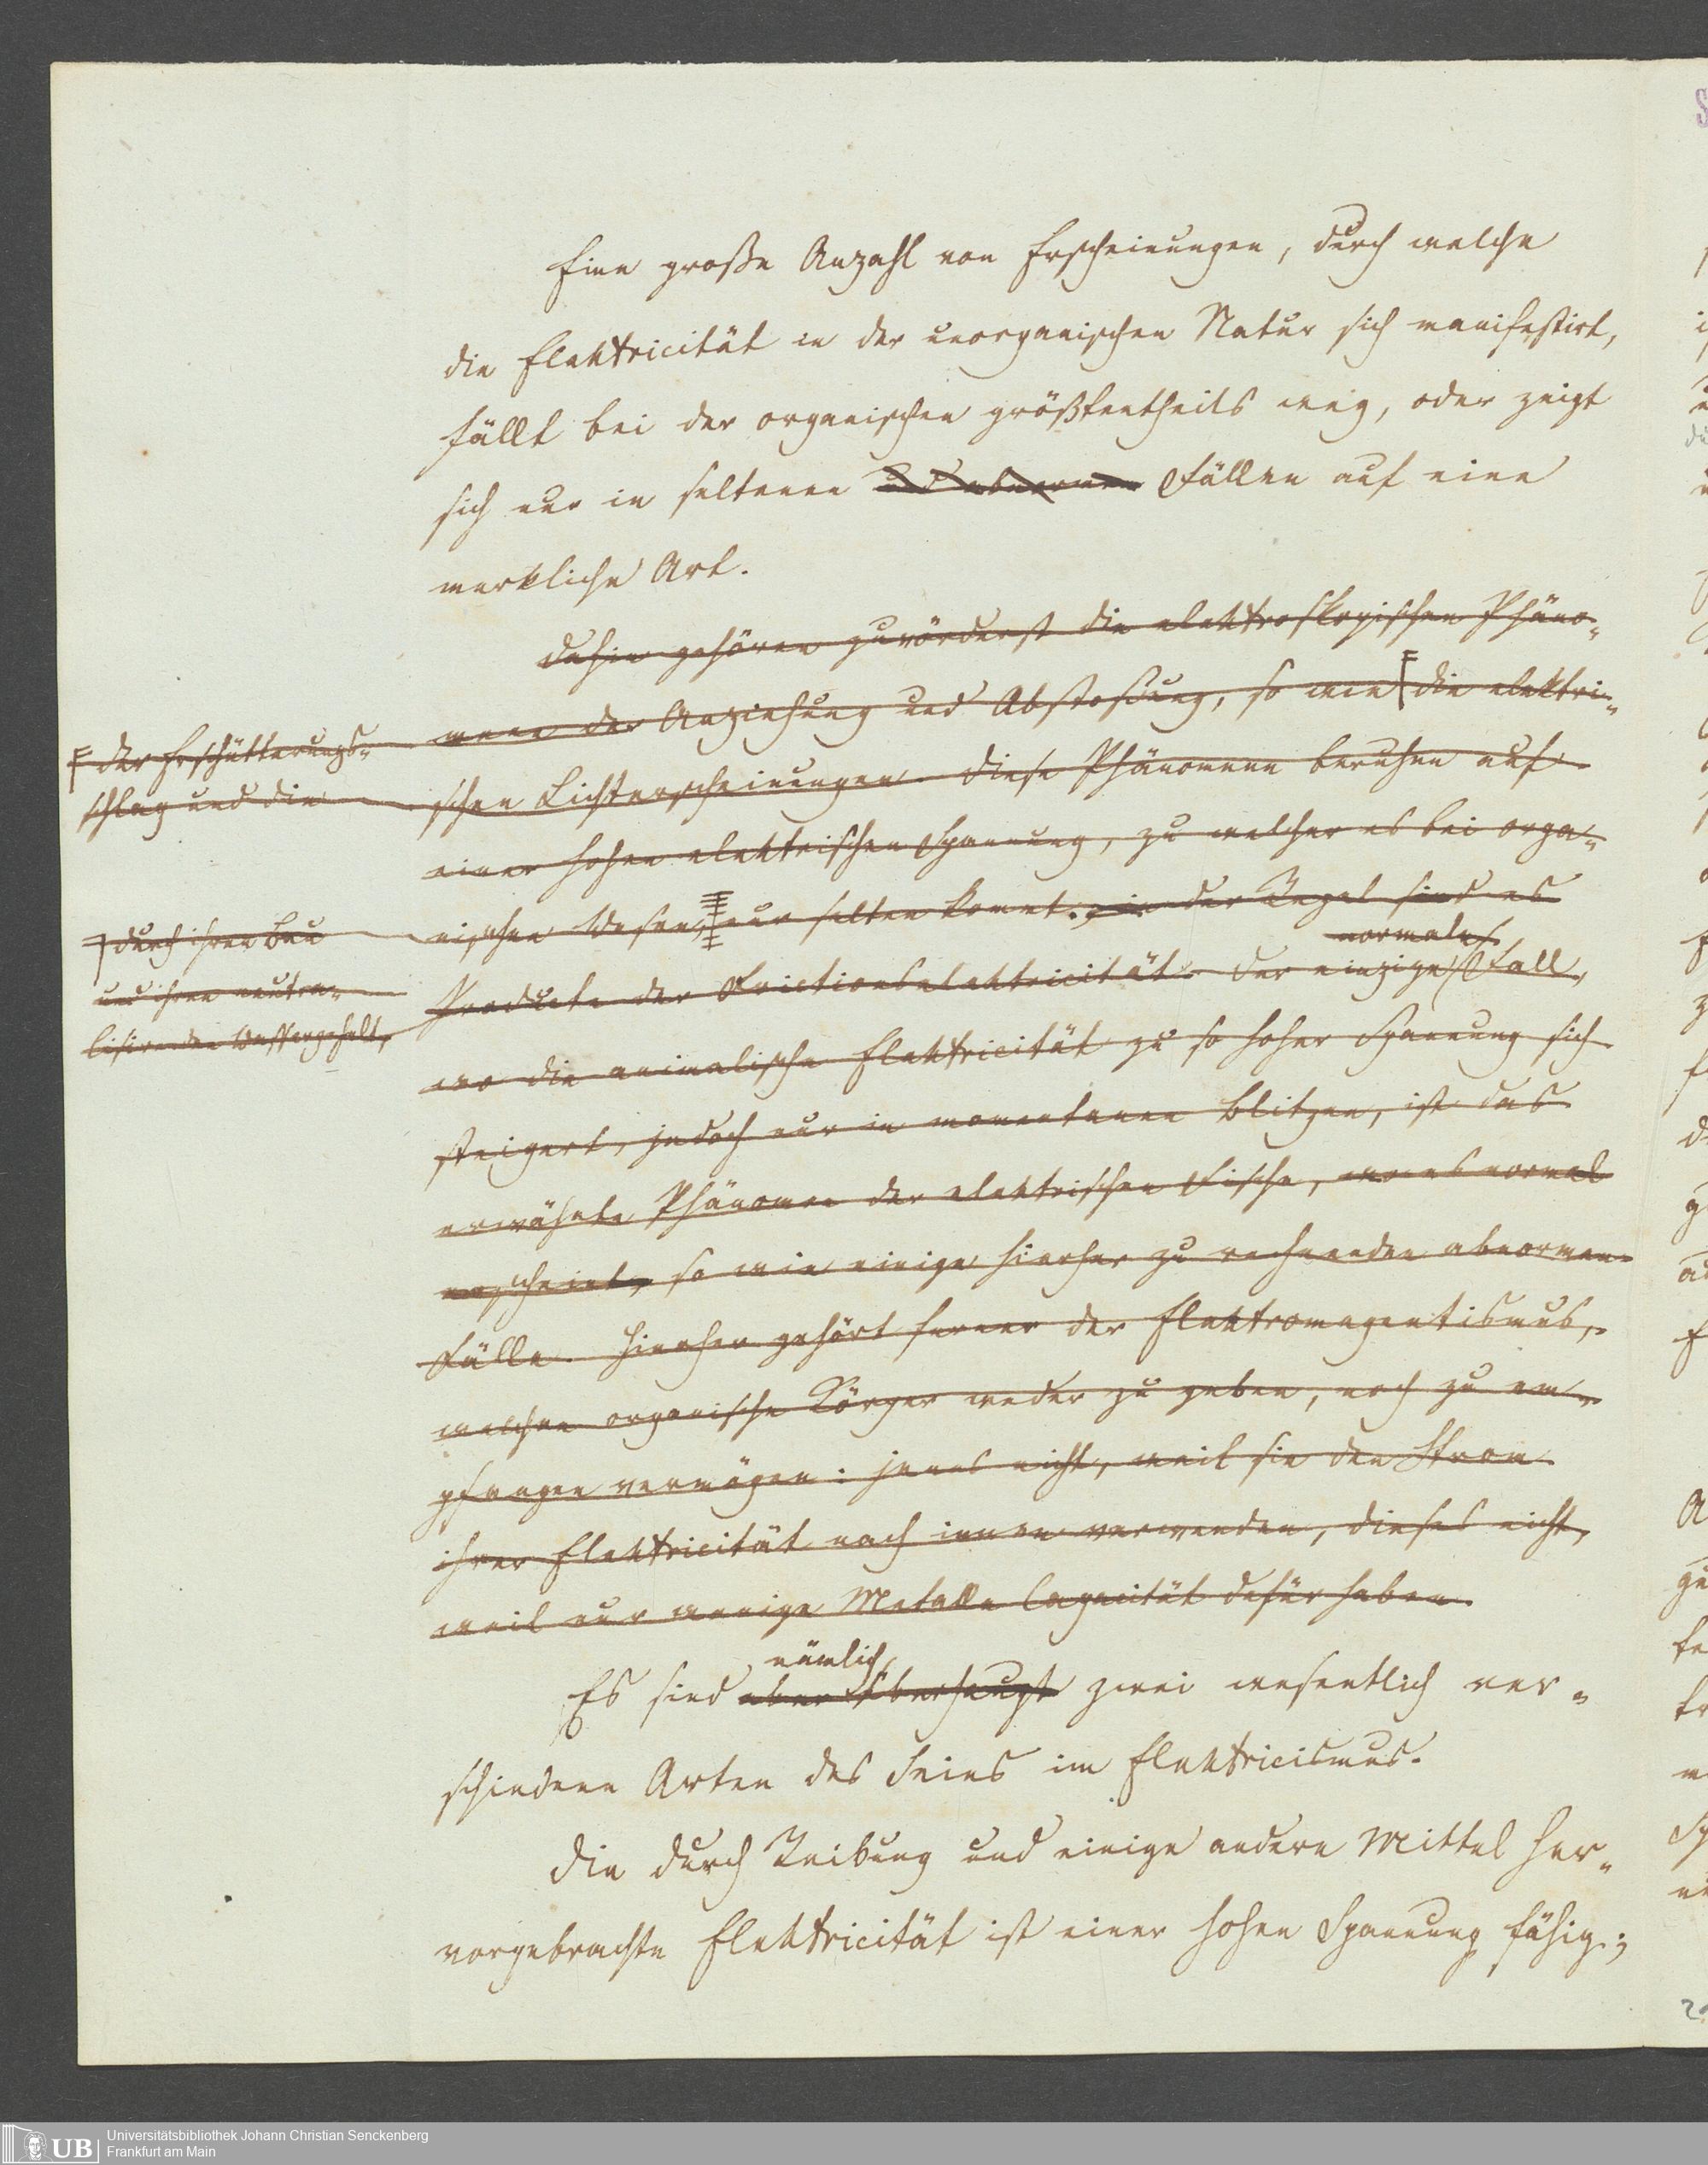 Eine große Anzahl von Erscheinungen, durch welche
die Elektricität in der unorganischen Natur sich manifestirt,
fällt bei der organischen größtentheils weg, oder zeigt
sich nur in seltenen und abnormen Fällen auf eine
merkliche Art.
Dahin gehören zuvörderst die elektroskopischen Phäno-
mene der Anziehung und Abstoßung, so wie die elektri-
der Erschütterungs-
schlag und die
schen Lichterscheinungen. Diese Phänomene beruhen auf
einer hohen elektrischen Spannung, zu welcher es bei orga-
nischen Wesen, nur selten kommt; in der Regel sind es
durch ihren Bau
und ihren neutra-
lisirenden Wassergehalt,
normale
Producte der Frictionselektricität. Der einzige Fall,
wo die animalische Elektricität zu so hoher Spannung sich
steigert, jedoch nur in momentanen Blitzen, ist das
erwähnte Phänomen der elektrischen Fische, wo es normal
erscheint, so wie einige hierher zu rechnenden abnormen
Fälle. Hierher gehört ferner der Elektromagnetismus,
welchen organische Körper weder zu geben, noch zu em-
pfangen vermögen: jenes nicht, weil sie den Strom
ihrer Elektricität nach innen verwenden, dieses nicht,
weil nur wenige Metalle Capacität dafür haben.
nämlich
Es sind aber überhaupt zwei wesentlich ver-
schiedene Arten des Seins im Elektricismus.
Die durch Reibung und einige andere Mittel her-
vorgebrachte Elektricität ist einer hohen Spannung fähig;
UB
Universitätsbibliothek Johann Christian Senckenberg
Frankfurt am Main